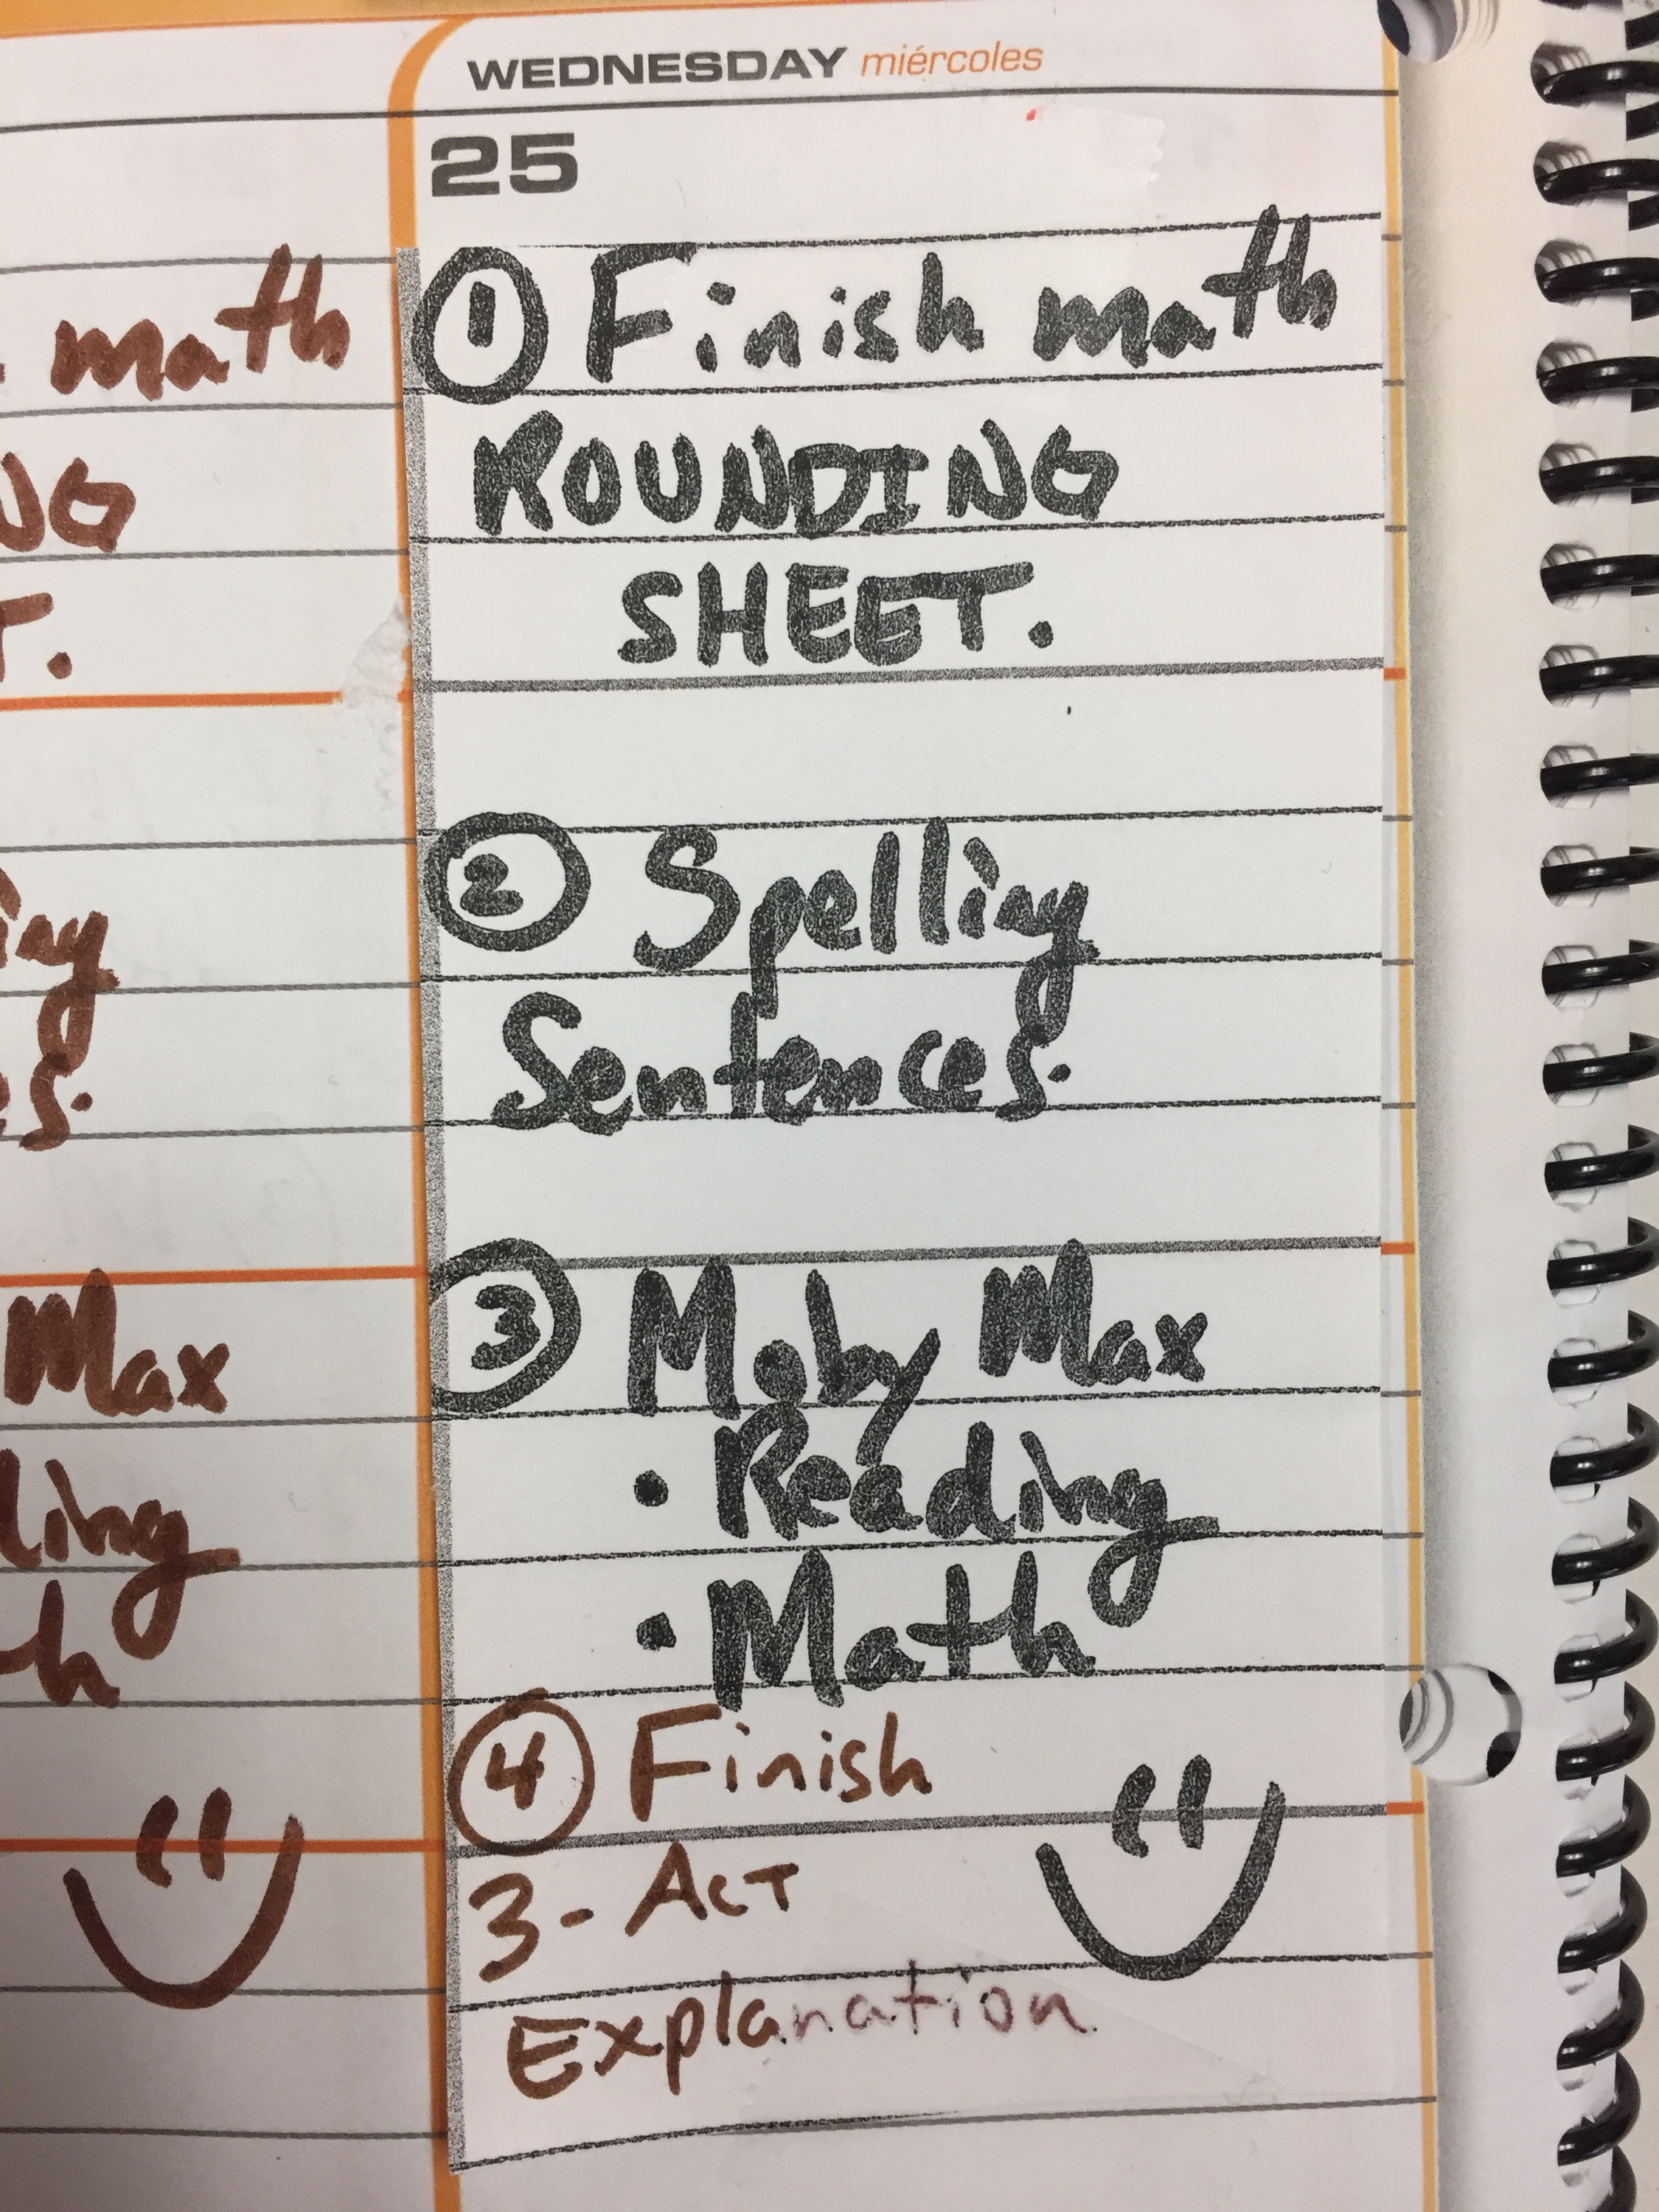 WEDNESDAY miércoles
25
math
① Finish math
NG
ROUNDING
T.
SHEET.
ing
② Spelling
es.
Sentences.
Max
③ Moby Max
ling
• Reading
th
• Math
④ Finish
3-Act
Explanation